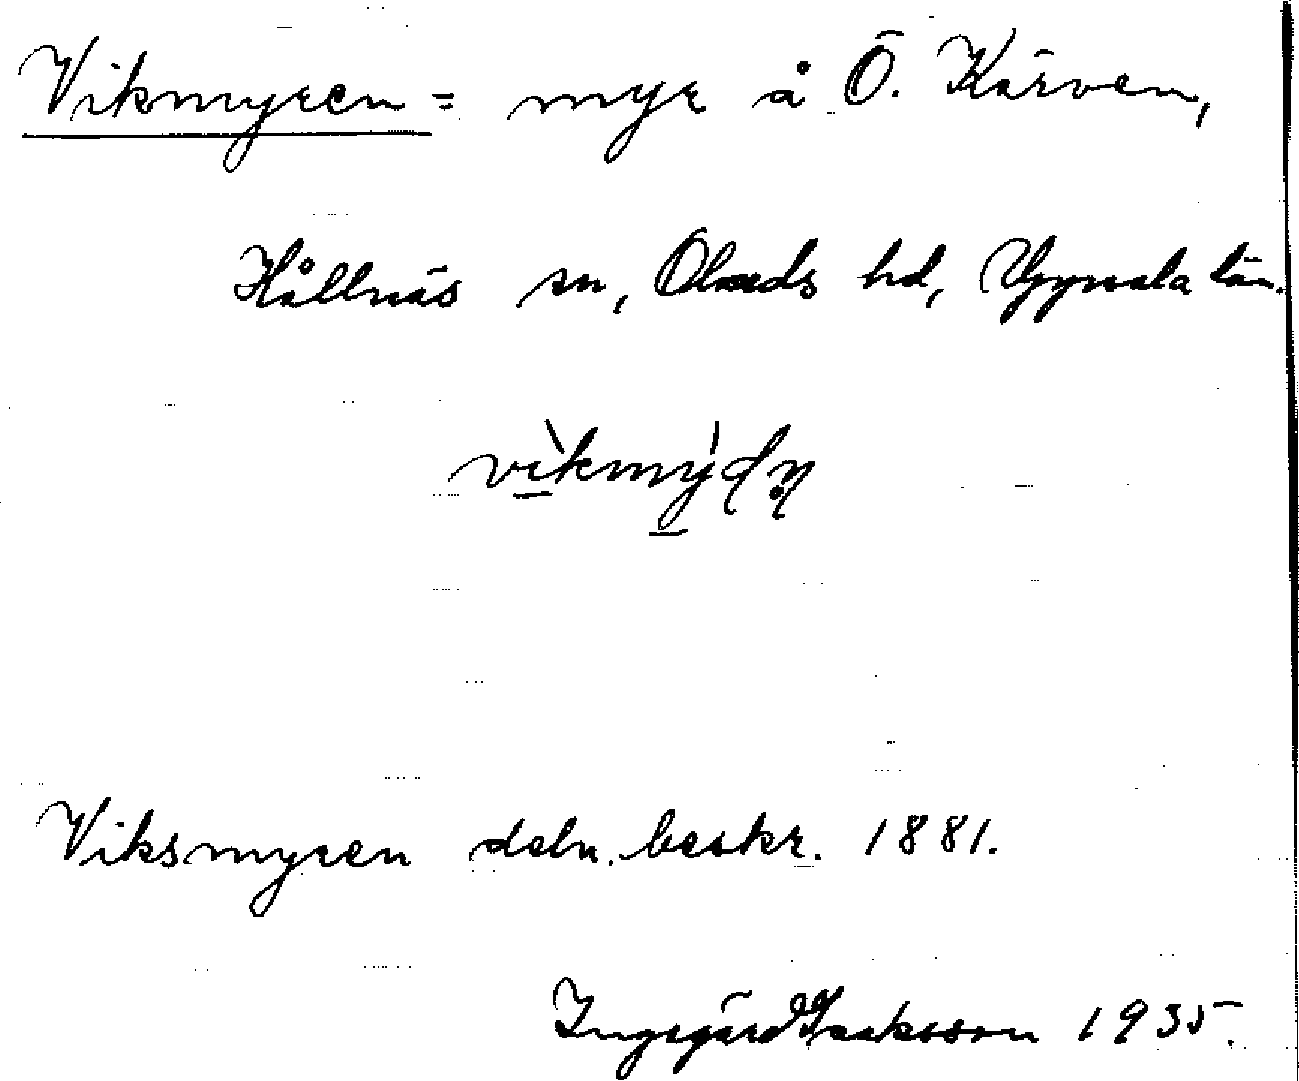 Vikmyren = myr å Ö. Kärven,
Hållnäs sn, Olands hd, Uppsala län.
vikmyra
Viksmyren deln. beskr. 1881.
Ingegärd Isaksson 1935.